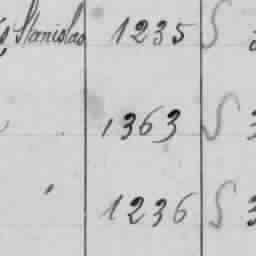 Stanislao 1235 S
1363 S 3
" 1236 S 3